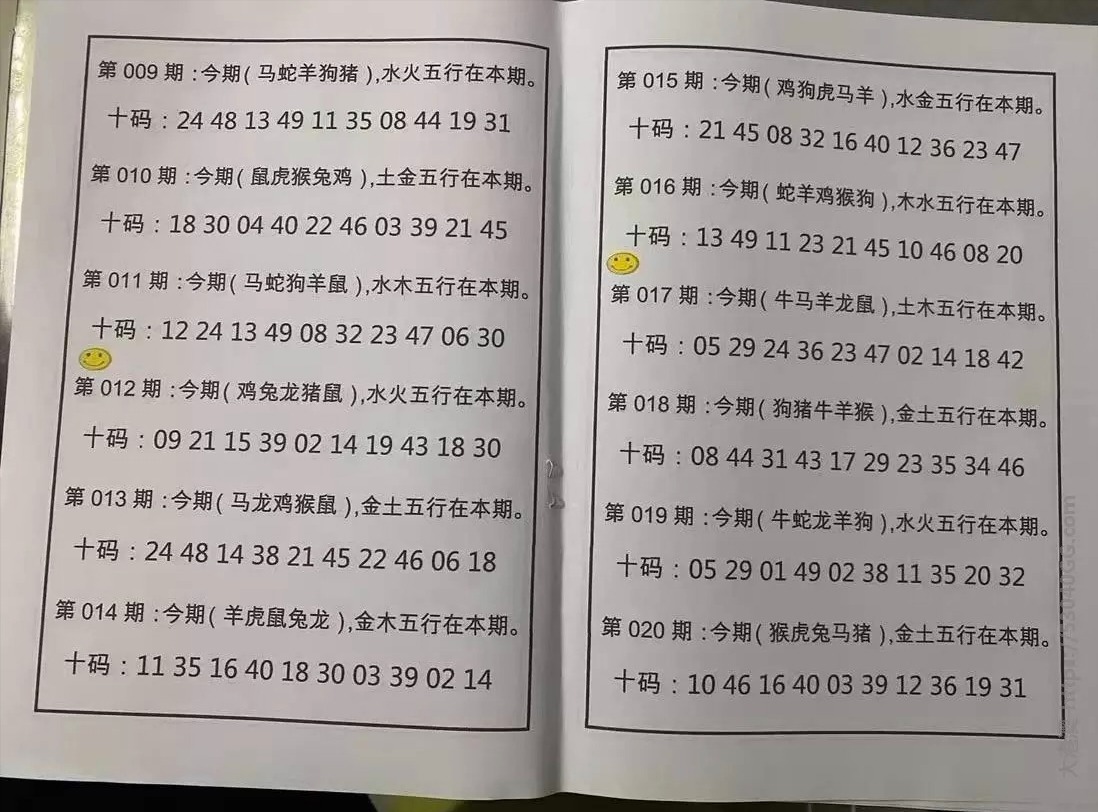 第 009 期 :今期( 马蛇羊狗猪 ),水火五行在本期。
十码 : 24 48 13 49 11 35 08 44 19 31
第 010 期 :今期( 鼠虎猴兔鸡 ),土金五行在本期。
十码 : 18 30 04 40 22 46 03 39 21 45
第 011 期 :今期( 马蛇狗羊鼠 ),水木五行在本期。
十码 : 12 24 13 49 08 32 23 47 06 30
第 012 期 :今期( 鸡兔龙猪鼠 ),水火五行在本期。
十码 : 09 21 15 39 02 14 19 43 18 30
第 013 期 :今期( 马龙鸡猴鼠 ),金土五行在本期。
十码 : 24 48 14 38 21 45 22 46 06 18
第 014 期 :今期( 羊虎鼠兔龙 ),金木五行在本期。
十码 : 11 35 16 40 18 30 03 39 02 14
第 015 期 :今期( 鸡狗虎马羊 ),水金五行在本期。
十码 : 21 45 08 32 16 40 12 36 23 47
第 016 期 :今期( 蛇羊鸡猴狗 ),木水五行在本期。
十码 : 13 49 11 23 21 45 10 46 08 20
第 017 期 :今期( 牛马羊龙鼠 ),土木五行在本期。
十码 : 05 29 24 36 23 47 02 14 18 42
第 018 期 :今期( 狗猪牛羊猴 ),金土五行在本期。
十码 : 08 44 31 43 17 29 23 35 34 46
第 019 期 :今期( 牛蛇龙羊狗 ),水火五行在本期。
十码 : 05 29 01 49 02 38 11 35 20 32
第 020 期 :今期( 猴虎兔马猪 ),金土五行在本期。
十码 : 10 46 16 40 03 39 12 36 19 31